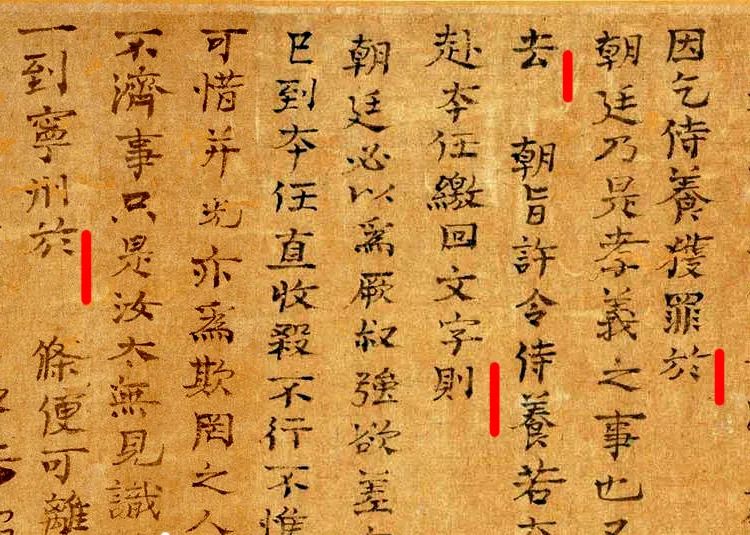 因乞侍養獲罪於
朝廷乃是孝義之事也
去 朝旨許令侍養若
赴本任繳回文字則
朝廷必以爲厥叔強欲差
已到本任直收殺不行不惟
可惜并光亦爲欺罔之人
不濟事只是汝太無見識
一到寧州於 條便可離